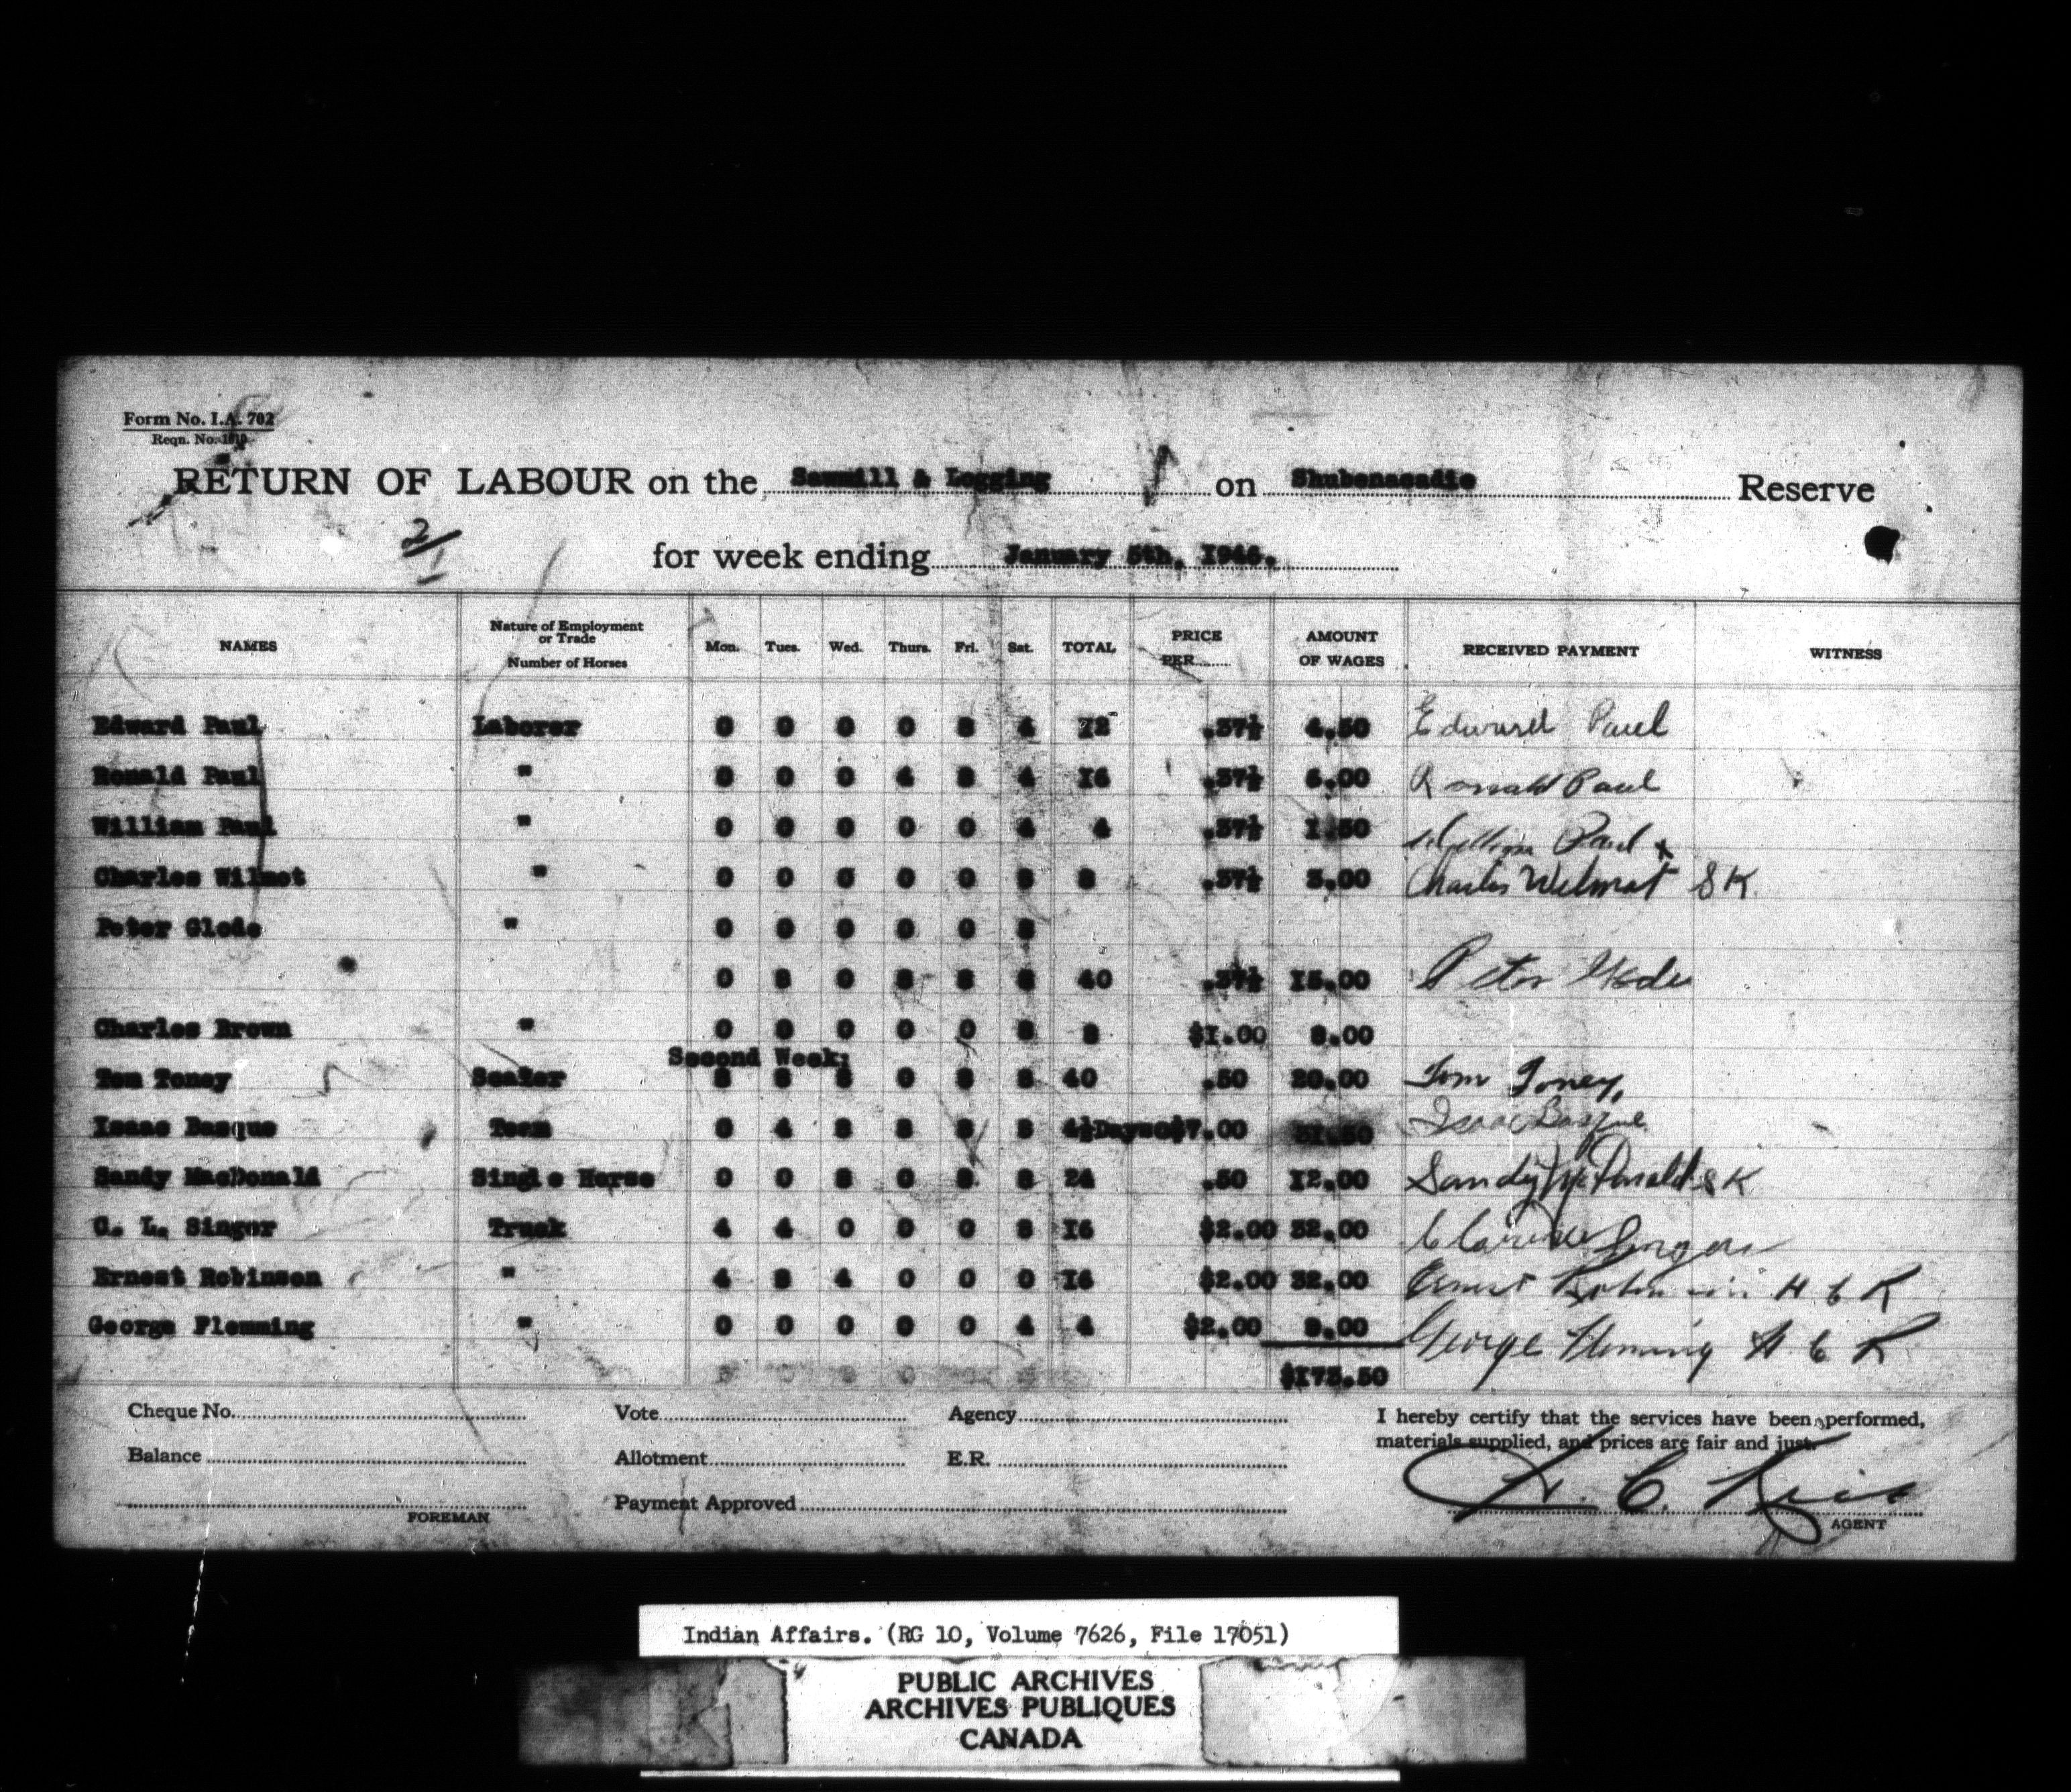 Form No. I.A. 702
Reqn. No.
RETURN OF LABOUR on the Sawmill & Logging on Shubenacadie Reserve
2/1
for week ending January 5th, 1946.
NAMES Nature of Employment or Trade Number of Horses Mon. Tues. Wed. Thurs. Fri. Sat. TOTAL PRICE PER AMOUNT OF WAGES RECEIVED PAYMENT WITNESS
Edward Paul Laborer 0 0 0 0 8 4 12 .37½ 4.50 Edward Paul
Ronald Paul " 0 0 0 4 8 4 16 .37½ 6.00 Ronald Paul
William Paul " 0 0 0 0 0 4 4 .37½ 1.50 William Paul x
Charles Wilmot " 0 0 0 0 0 8 8 .37½ 3.00 Charles Wilmot SK
Peter Glode " 0 0 0 0 0 8
0 8 0 8 8 8 40 .37½ 15.00 Peter Glode
Charles Brown " 0 0 0 0 0 8 8 $1.00 8.00
Second Week:
Tom Toney Sealer 8 8 8 0 8 8 40 .50 20.00 Tom Toney,
Isaac Basque Team 0 4 8 8 8 8 4½Days@$7.00 31.50 Isaac Basque
Sandy MacDonald Single Horse 0 0 8 0 8 8 24 .50 12.00 Sandy McDonald SK
C. L. Singer Truck 4 4 0 0 0 8 16 $2.00 32.00 Clarence Singer
Ernest Robinson " 4 8 4 0 0 0 16 $2.00 32.00 Ernest Robinson H C R
George Flemming " 0 0 0 0 0 4 4 $2.00 8.00 George Fleming H C R
$173.50
Cheque No. Vote Agency I hereby certify that the services have been performed,
materials supplied, and prices are fair and just.
Balance Allotment E.R.
Payment Approved H. C. Rice
FOREMAN AGENT
Indian Affairs. (RG 10, Volume 7626, File 17051)
PUBLIC ARCHIVES
ARCHIVES PUBLIQUES
CANADA